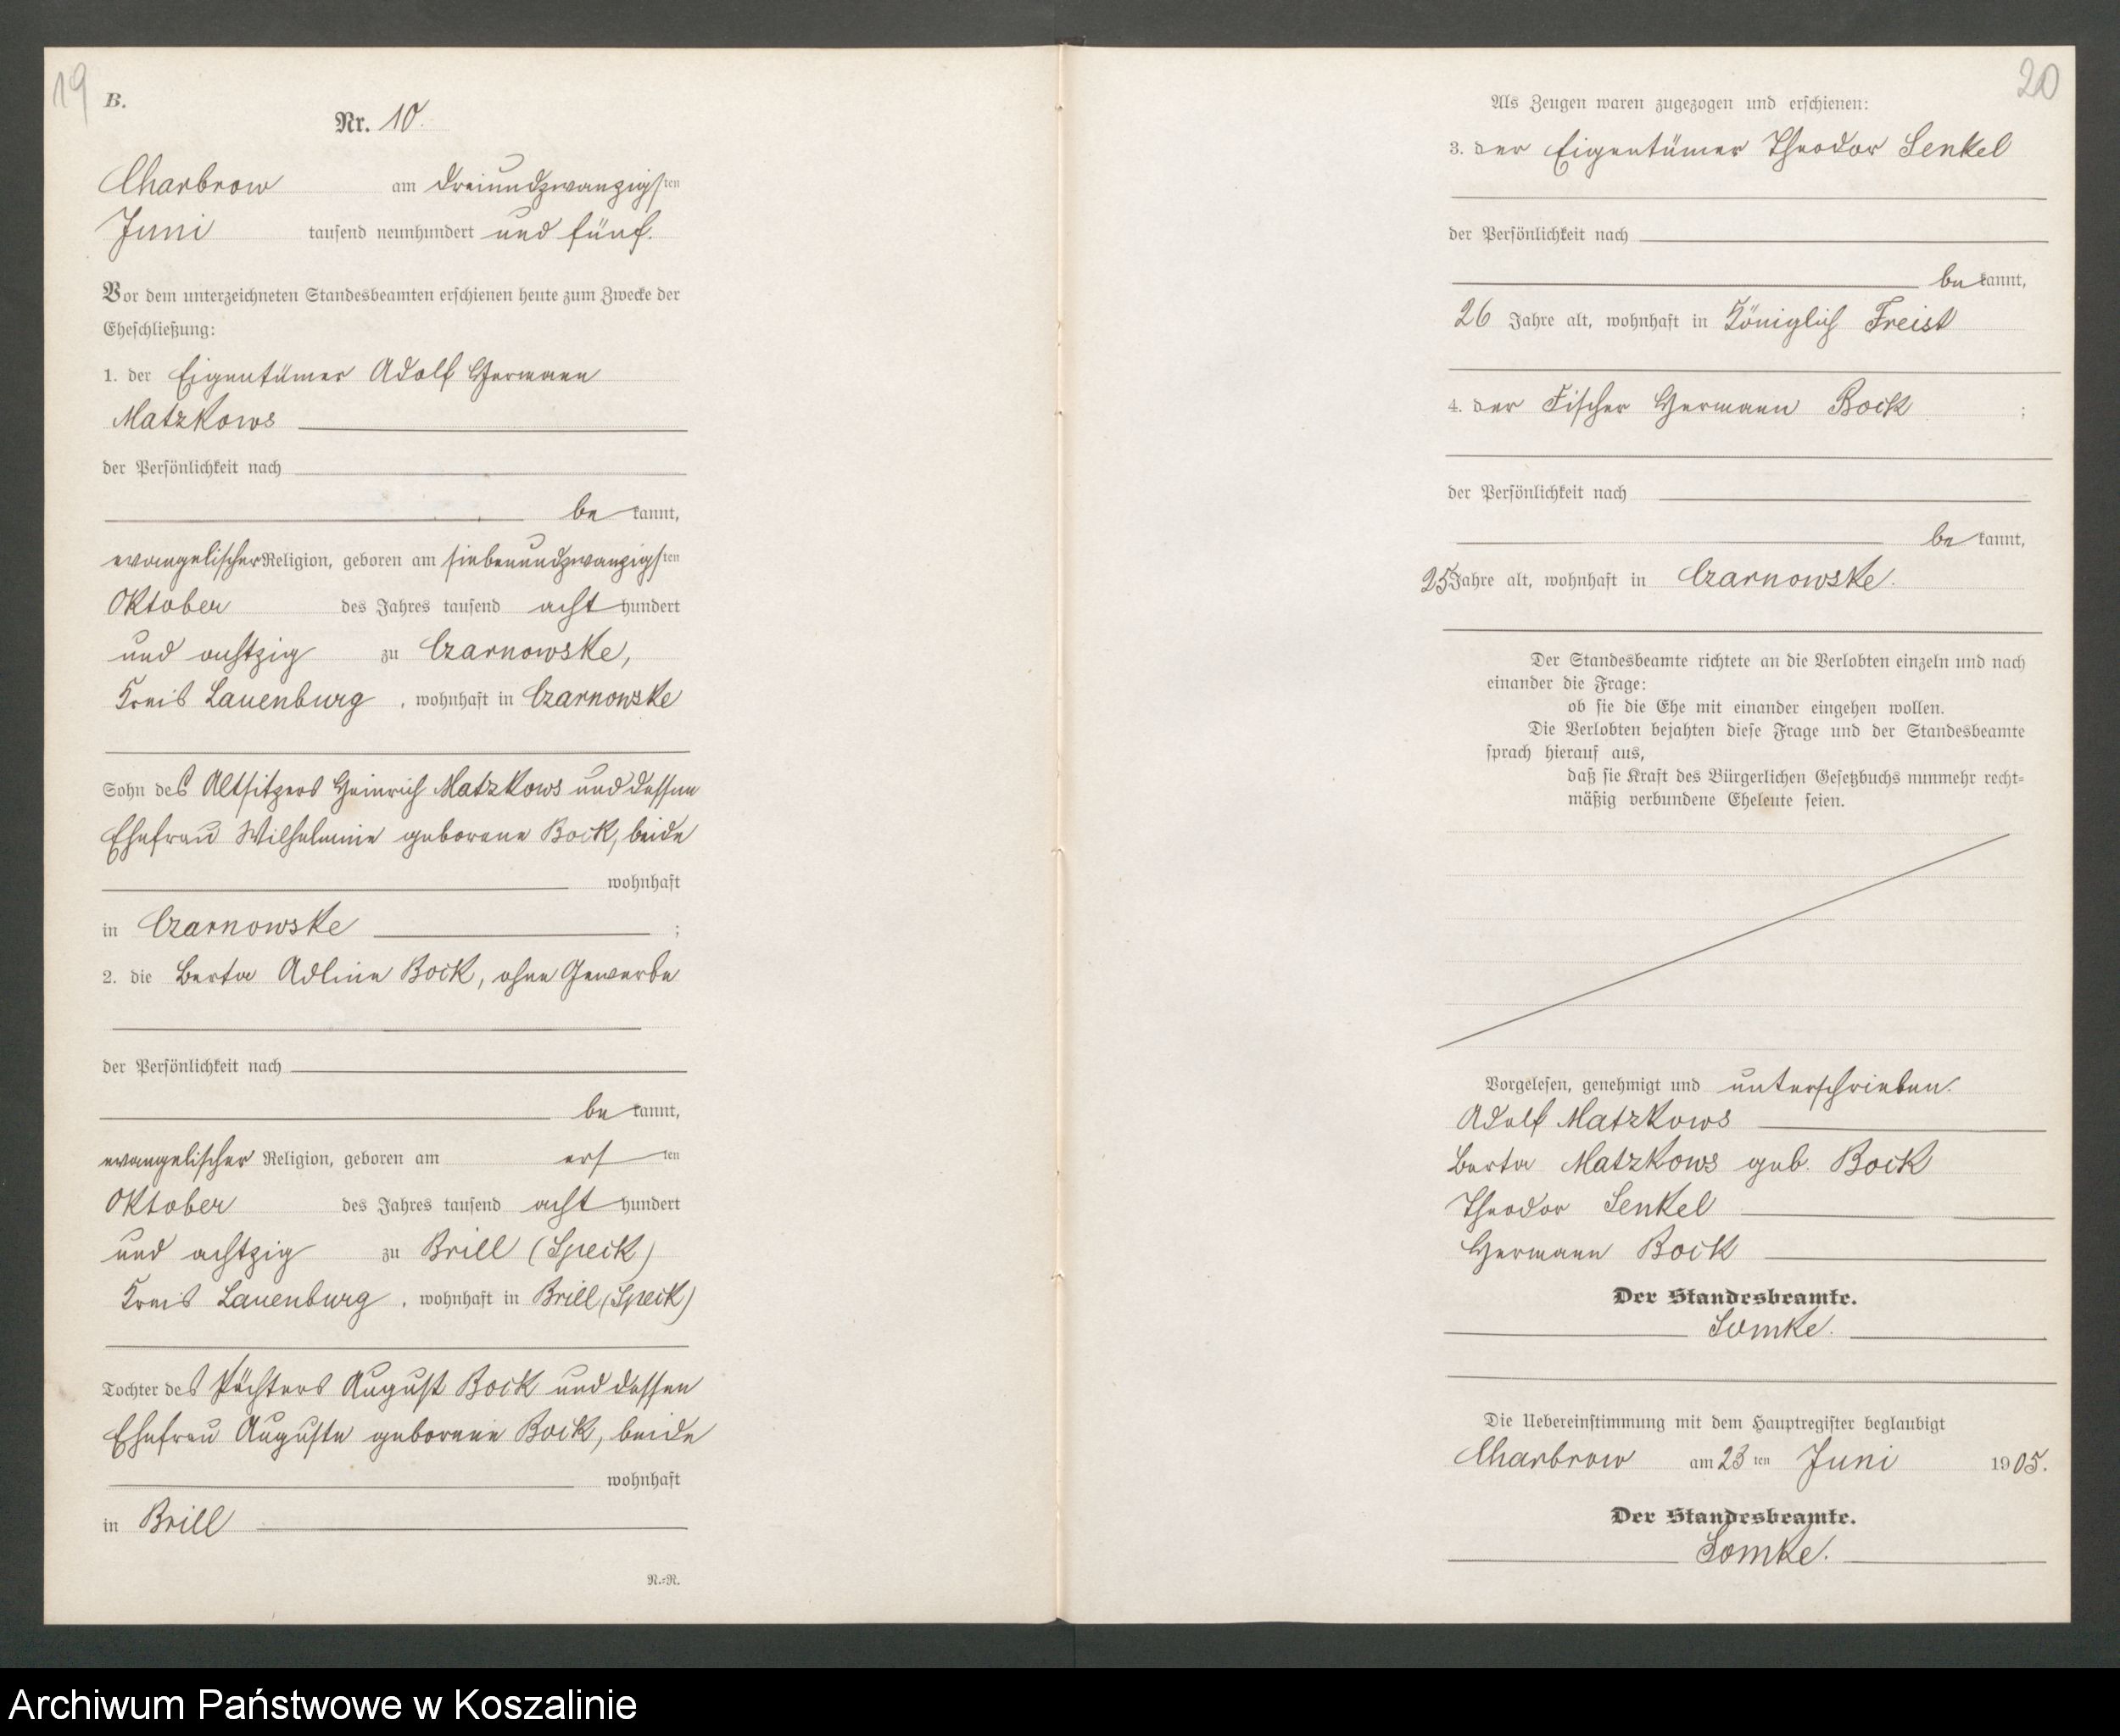 19
B.
Nr. 10.
Charbrow am dreiundzwanzigsten
Juni tausend neunhundert und fünf.
Vor dem unterzeichneten Standesbeamten erschienen heute zum Zwecke der
Eheschließung:
1. der Eigentümer Adolf Hermann
Matzkows
der Persönlichkeit nach
be kannt,
evangelischer Religion, geboren am siebenundzwanzigsten
Oktober des Jahres tausend acht hundert
und achtzig zu Czarnowske,
Kreis Lauenburg, wohnhaft in Czarnowske
Sohn des Altsitzers Heinrich Matzkows und dessen
Ehefrau Wilhelmine geborene Bock, beide
wohnhaft
in Czarnowske ;
2. die Berta Adline Bock, ohne Gewerbe
der Persönlichkeit nach
be kannt,
evangelischer Religion, geboren am ersten
Oktober des Jahres tausend acht hundert
und achtzig zu Brill (Speck)
Kreis Lauenburg, wohnhaft in Brill (Speck)
Tochter des Pächters August Bock und dessen
Ehefrau Auguste geborene Bock, beide
wohnhaft
in Brill
N.=R.
20
Als Zeugen waren zugezogen und erschienen:
3. der Eigentümer Theodor Senkel
der Persönlichkeit nach
be kannt,
26 Jahre alt, wohnhaft in Königlich Freist
4. der Fischer Hermann Bock ;
der Persönlichkeit nach
be kannt,
25 Jahre alt, wohnhaft in Czarnowske.
Der Standesbeamte richtete an die Verlobten einzeln und nach
einander die Frage:
ob sie die Ehe mit einander eingehen wollen.
Die Verlobten bejahten diese Frage und der Standesbeamte
sprach hierauf aus,
daß sie kraft des Bürgerlichen Gesetzbuchs nunmehr recht=
mäßig verbundene Eheleute seien.
Vorgelesen, genehmigt und unterschrieben.
Adolf Matzkows
Berta Matzkows geb. Bock
Theodor Senkel
Hermann Bock
Der Standesbeamte.
Lomke.
Die Uebereinstimmung mit dem Hauptregister beglaubigt
Charbrow am 23 ten Juni 1905.
Der Standesbeamte.
Lomke.
Archiwum Państwowe w Koszalinie